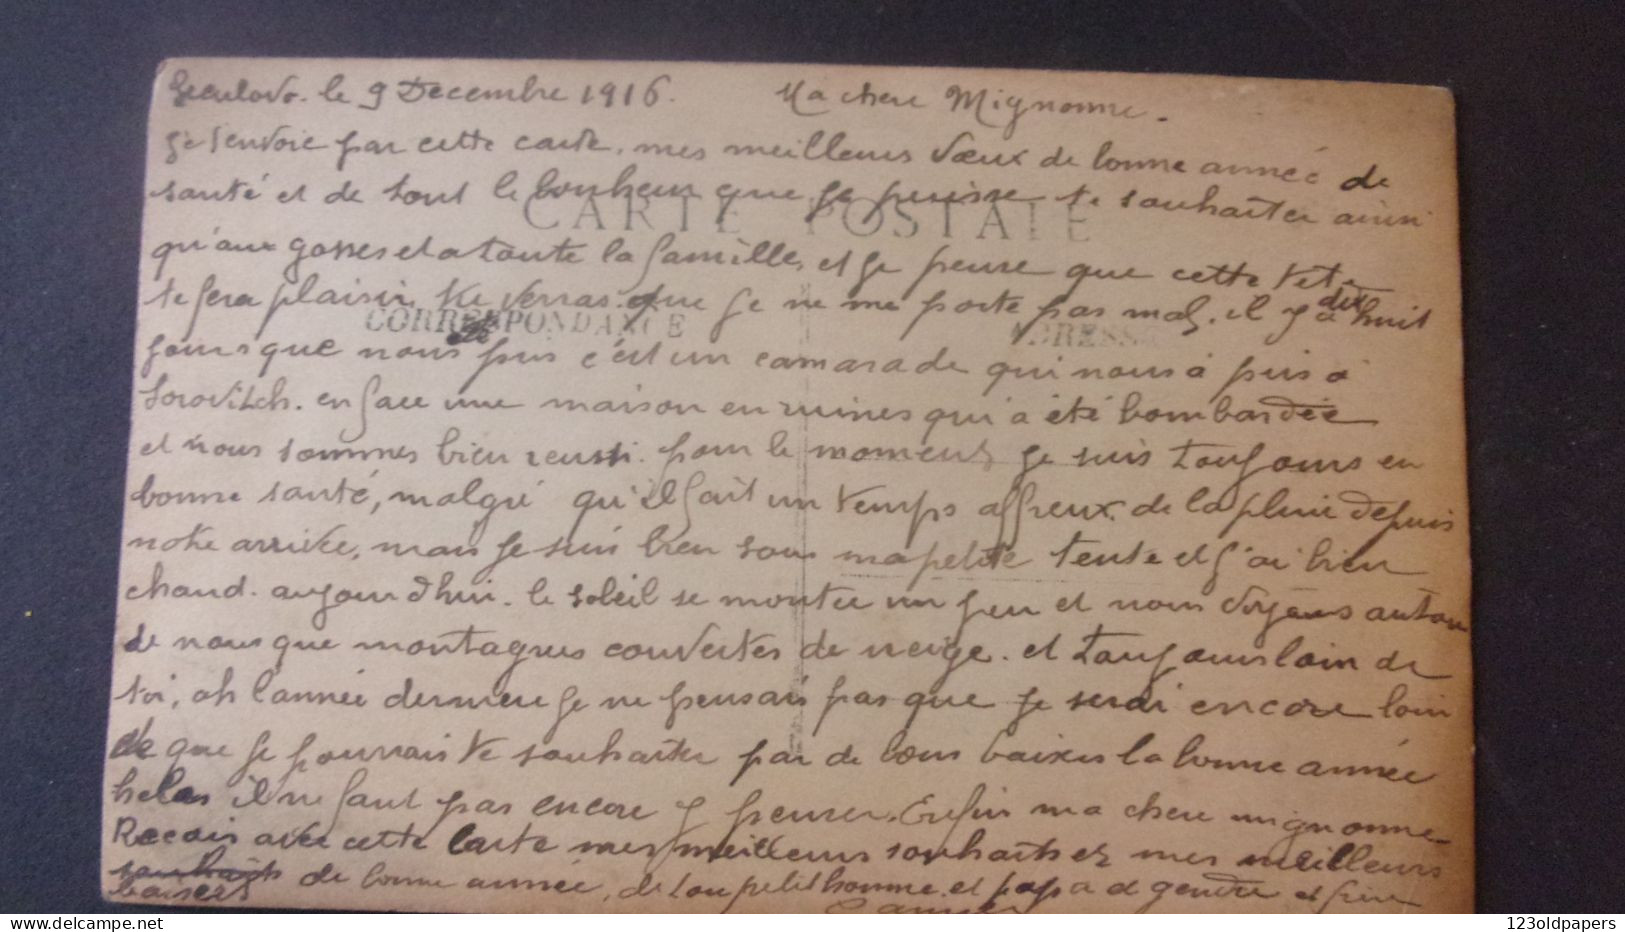 le 9 Decembre 1916. Ma chere Mignonne.
Je t'envoie par cette carte, mes meilleurs Vœux de bonne année de
santé et de tout le bonheur que je puisse te souhaiter ainsi
CARTE POSTALE
qu'aux gosses et a toute la famille, et je pense que cette
te fera plaisir, tu verras que je ne me porte pas mal, il y a dix huit
CORRESPONDANCE
ADRESSE
jours que nous pris c'est un camarade qui nous a pris a
Sorovitch. en face une maison en ruines qui a été bombardée
et nous sommes bien reussi. pour le moment je suis toujours en
bonne santé, malgré qu'il fait un temps affreux. de la pluie depuis
notre arrivée, mais je suis bien sous ma petite tente et j'ai bien
chaud. aujourd'hui. le soleil se montre un peu et nous voyons autour
de nous que montagnes couvertes de neige. et toujours loin de
toi, oh l'année derniere je ne pensais pas que je serai encore loin
de que je pourrais te souhaiter par de bons baisers la bonne année
helas il ne faut pas encore y penser. Enfin ma chere mignonne
Recois avec cette carte mes meilleurs souhaits et mes meilleurs
baisers de bonne année, de tou petit homme. et papa et gendre et
123oldpapers